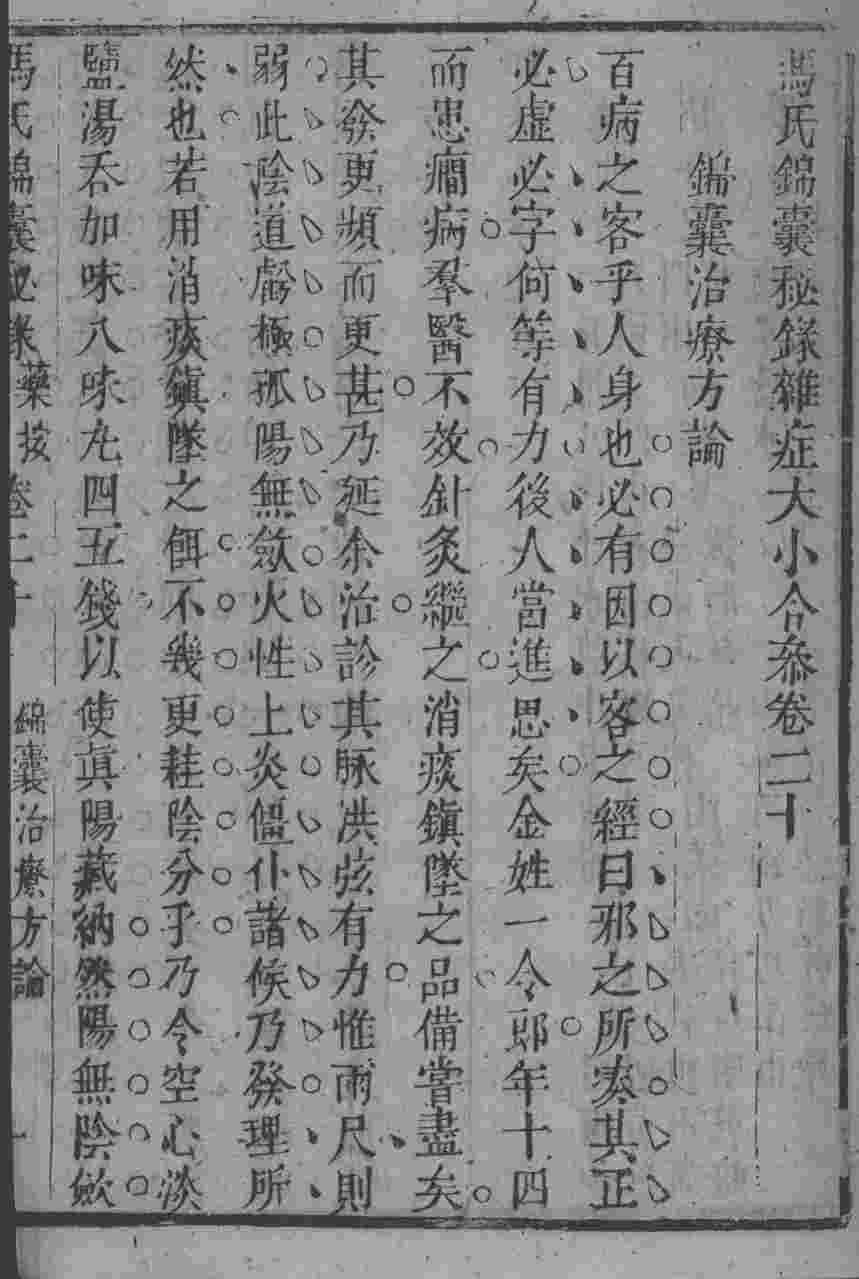 馮氏錦囊秘錄雜症大小合叅卷二十
錦囊治療方論
百病之客乎人身也必有因以客之經曰邪之所凑其正
必虛必字何等有力後人當進思矣金姓一令郎年十四
而患癎病羣醫不效針灸繼之消痰鎭墜之品備嘗盡矣
其發更頻而更甚乃延余治診其脉洪弦有力惟兩尺則
弱此陰道虧極孤陽無斂火性上炎僵仆諸候乃發理所
然也若用消痰鎭墜之餌不幾更耗陰分乎乃令空心淡
鹽湯吞加味八味丸四五錢以使眞陽藏納然陽無陰斂
馮氏錦囊秘錄 藥按 卷二十 錦囊治療方論 一